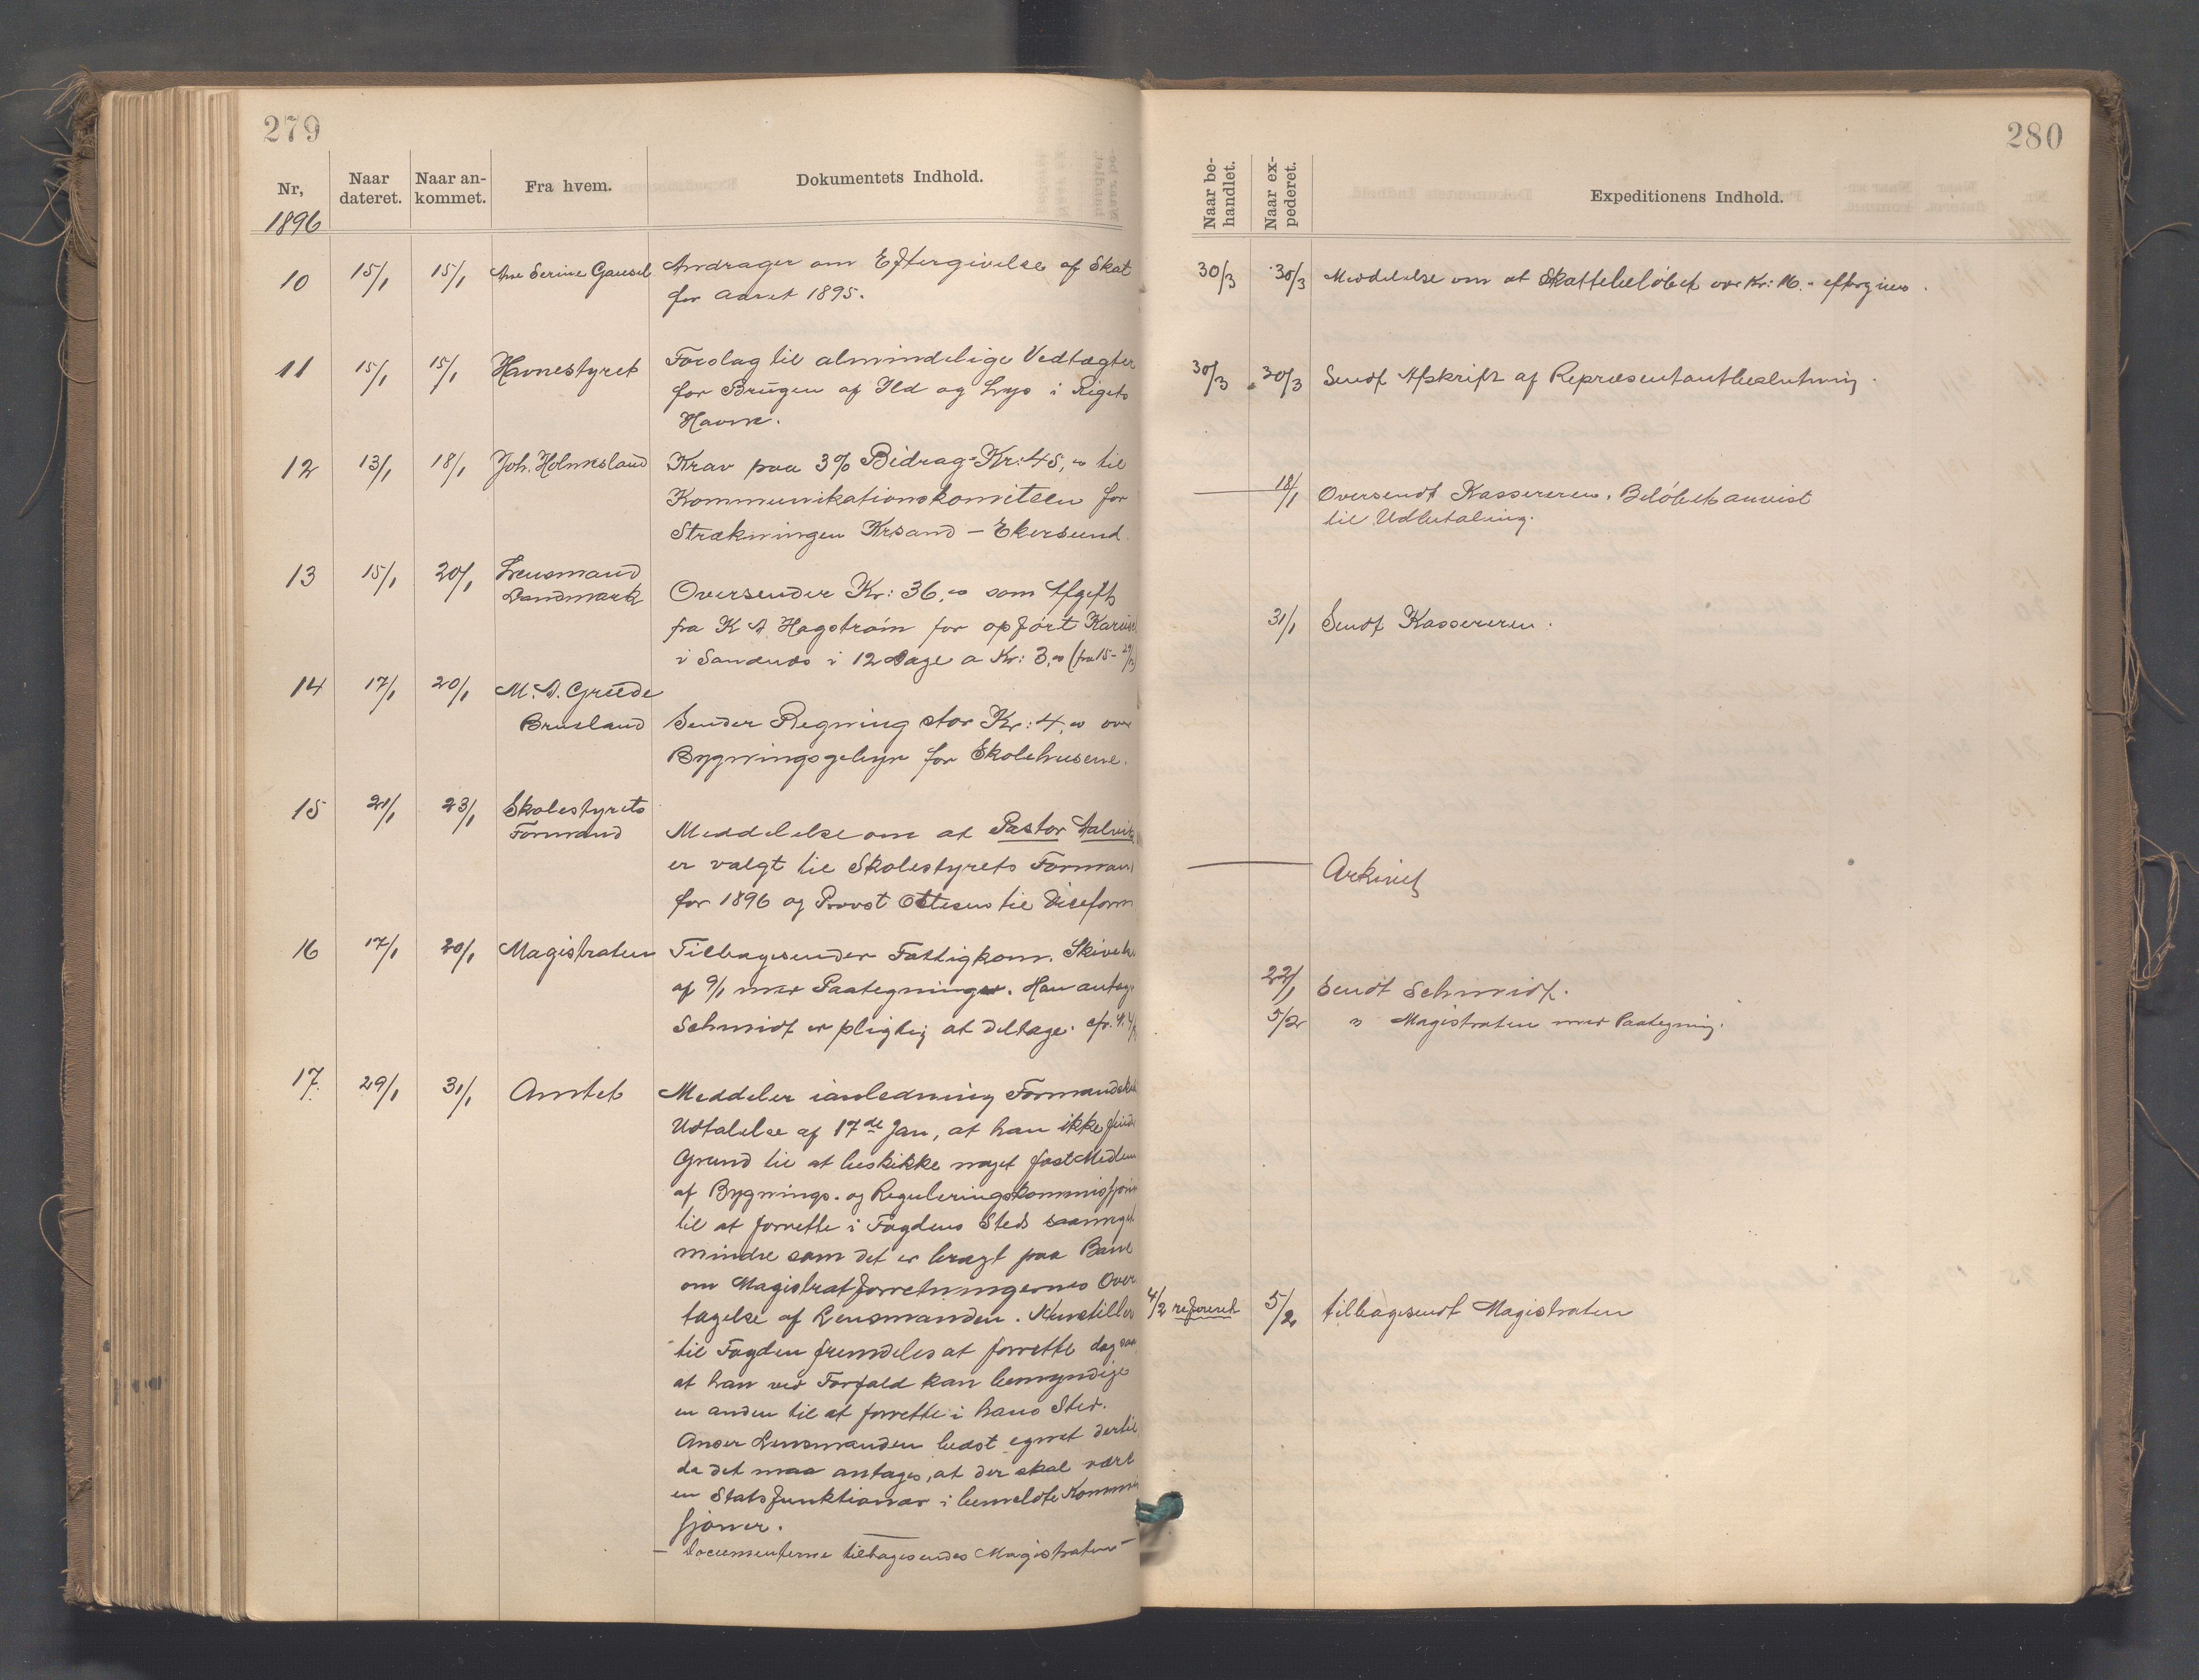 279
Nr,
Naar dateret.
Naar ankommet.
Fra hvem.
Dokumentets Indhold.
1896
10 15/1 15/1 Ane Serine Gausel Andrager om Eftergivelse af Skat
for Aaret 1895.
11 15/1 15/1 Havnestyret Forslag til almindelige Vedtægter
for Brugen af Ild og Lys i Rigets
Havne.
12 13/1 18/1 Joh. Holmesland Krav paa 3% Bidrag = Kr: 45,00 til
Kommunikationskomiteen for
Strækningen Krsand – Ekersund.
13 15/1 20/1 Lensmand
Landmark Oversender Kr: 36,00 som Afgift
fra K A Hagström for opført
i Sandnes i 12 Dage a Kr: 3,00 (fra 15-
14 17/1 20/1 M. A. Grude
Brueland Sender Regning stor Kr: 4,00 over
Bygningsgebyr for Skolehusene.
15 21/1 23/1 Skolestyrets
Formand Meddelelse om at Pastor
er valgt til Skolestyrets Forman
for 1896 og Provst Ottesen til Viseform
16 17/1 20/1 Magistraten Tilbagesender Fattigkom. Skivelse
af 9/1 med Paategning. Han antag
Schmidt er pligtig at deltage. cfr.
17. 29/1 31/1 Amtet Meddeler ianledning Formandsk
Udtalelse af 17de Jan, at han ikke finde
Grund til at beskikke noget fast Medlem
af Bygnings- og Reguleringskommissjon
til at forrette i Fogdens Sted saameget
mindre som det er bragt paa Bane
om Magistratforretningernes Over
tagelse af Lensmanden.
til Fogden fremdeles at forrette dog saa
at han ved Forfald kan bemyndige
en anden til at forrette i hans Sted.
Anser Lensmanden bedst egnet dertil
da det maa antages, at der skal være
en Statsfunktionær i bemeldte Kommis
sjoner.
– Documenterne tilbagesendes Magistraten –
280
Naar behandlet.
Naar expederet.
Expeditionens Indhold.
30/3 30/3 Meddelelse om at Skattebeløbet Kr: 16.- eftergives.
30/3 30/3 Sendt Afskrift af Repræsentantbeslutning.
18/1 Oversendt Kassereren. Beløbet anvist
til Udbetaling.
31/1 Sendt Kassereren.
Arkivet
22/1 Sendt Schmidt.
5/2 " Magistraten med Paategning.
4/2 refereret 5/2 tilbagesendt Magistraten